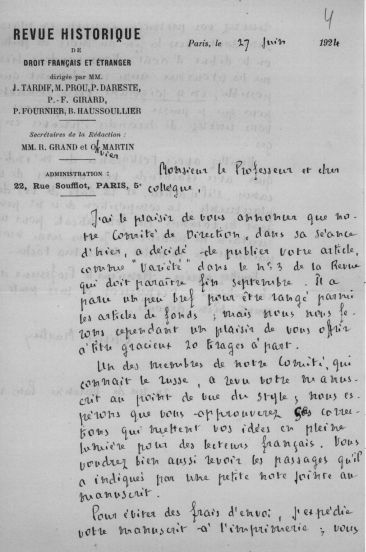 4
REVUE HISTORIQUE
DE
DROIT FRANÇAIS ET ÉTRANGER
dirigée par MM.
J. TARDIF, M. PROU, P. DARESTE,
P.-F. GIRARD,
P. FOURNIER, B. HAUSSOULLIER
Secrétaires de la Rédaction :
MM. R. GRAND et Ol. MARTIN
vier
ADMINISTRATION :
22, Rue Soufflot, PARIS, 5e
Paris, le 27 Juin 1924
Monsieur le Professeur et cher
collègue,
J'ai le plaisir de vous annoncer que no-
tre Comité de Direction, dans sa séance
d'hier, a décidé de publier votre article,
comme "Variété" dans le n° 3 de la Revue
qui doit paraître fin septembre. Il a
paru un peu bref pour être rangé parmi
les articles de fonds ; mais nous nous fe-
rons cependant un plaisir de vous offrir
à titre gracieux 20 tirages à part.
Un des membres de notre Comité, qui
connait le russe, a revu votre manus-
crit au point de vue du style ; nous es-
pérons que vous approuverez ces correc-
tions qui mettent vos idées en pleine
lumière pour des lecteurs français. Vous
voudrez bien aussi revoir les passages qu'il
a indiqués par une petite note jointe au
manuscrit.
Pour éviter des frais d'envoi, j'expédie
votre manuscrit à l'imprimerie ; vous